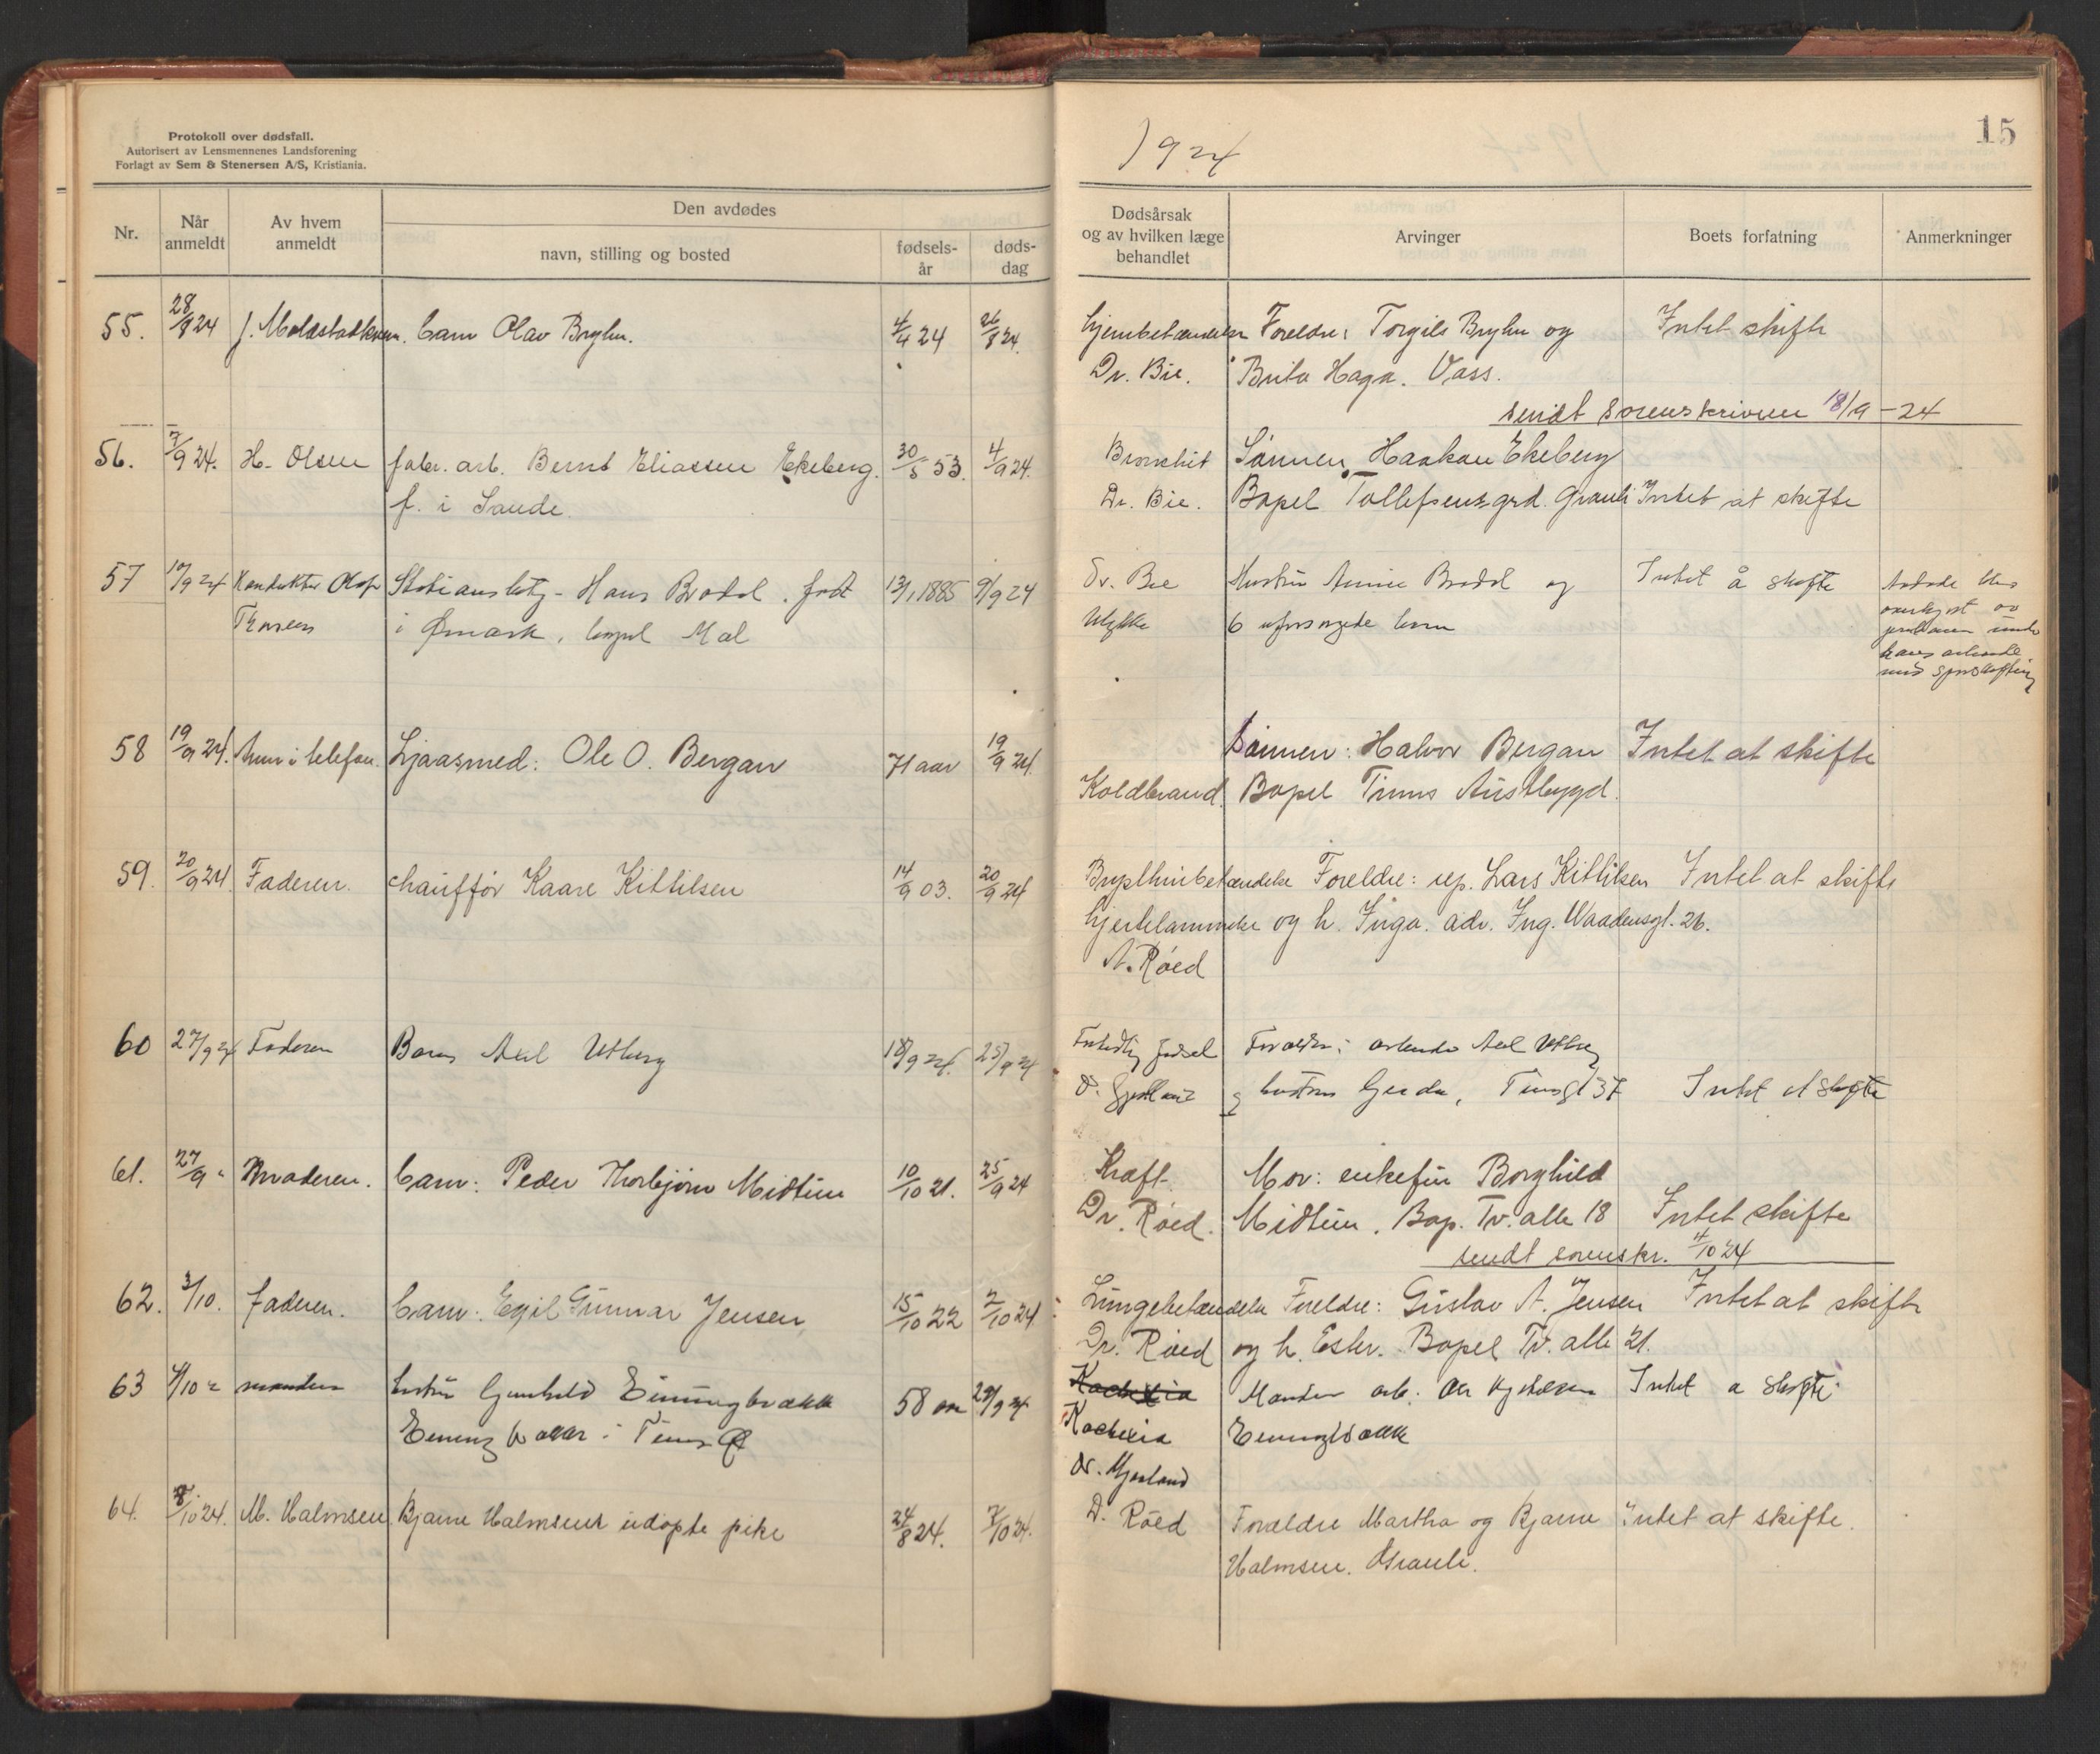 Protokoll over dødsfall.
Autorisert av Lensmennenes Landsforening
Forlagt av Sem & Stenersen A/S, Kristiania.
1924
15
Nr.
Når anmeldt
Av hvem anmeldt
Den avdødes
navn, stilling og bosted
fødsels-år
døds-dag
Dødsårsak og av hvilken læge behandlet
Arvinger
Boets forfatning
Anmerkninger
55. 28/8 24 barn Olav Bryhn. 4/4 24 26/8 24. Foreldre: Torgils Bryhn og Intet skifte
Dr. Bie. Brita Haga. Vass.
sendt sorenskriveren 18/9 - 24
56. 7/9 24. H. Olsen fabr. arb. Bernt Eliassen Ekeberg. 30/5 53. 4/9 24. Bronchit Sønnen Haakon Ekeberg
f. i Sande. Dr. Bie. Bopel Tollefsensgrd. Intet at skifte
57 10/9 24 Konduktør Olaf Hans født 13/1 1885 9/9 24 Dr. Bie Hustru og Intet å skifte
i Ømark, bopel Mæl Ulykke 6 uforsørgede barn
58 19/9 24. i telefon Ljaasmed: Ole O. Bergan 71 aar 19/9 24. Sønnen: Halvor Bergan Intet at skifte
Koldbrand. Bopel Tinns Austbygd.
59. 20/9 24 Faderen. chauffør Kaare Kittilsen 14/9 03. 20/9 24 Foreldre: rep. Lars Kittilsen Intet at skifte
og h. Inga. adr. Ing. Waadensgt. 26.
A. Røed
60 27/9 24 Faderen Barn 18/9 24. 25/9 24 fødsel
hustru Gerda, Intet at skifte
61. 27/9 " Moderen. barn: Peder Thorbjørn Midtun 10/10 21. 25/9 24 Kræft. Mor: enkefru Borghild
Dr. Røed. Midtun. Bop. Tv. alle 18 Intet skifte
sendt sorenskr. 4/10 24
62. 3/10. faderen. barn: Egil Gunnar Jensen 15/10 22 2/10 24 Lungebetændelse Foreldre: Gustav A. Jensen Intet at skifte
Dr. Røed og h. Ester. Bopel Tv. alle 21.
63 4/10 manden Gunhild 58 29/9 24 Kachexia Manden arb. Intet a skifte
Kachexia
Dr.
64. 8/10 24. M. Halmsen Bjarne Halmsens udøpte pike 24/8 24. 7/10 24. D. Røed Foreldre Martha og Bjarne Intet at skifte.
Halmsen.